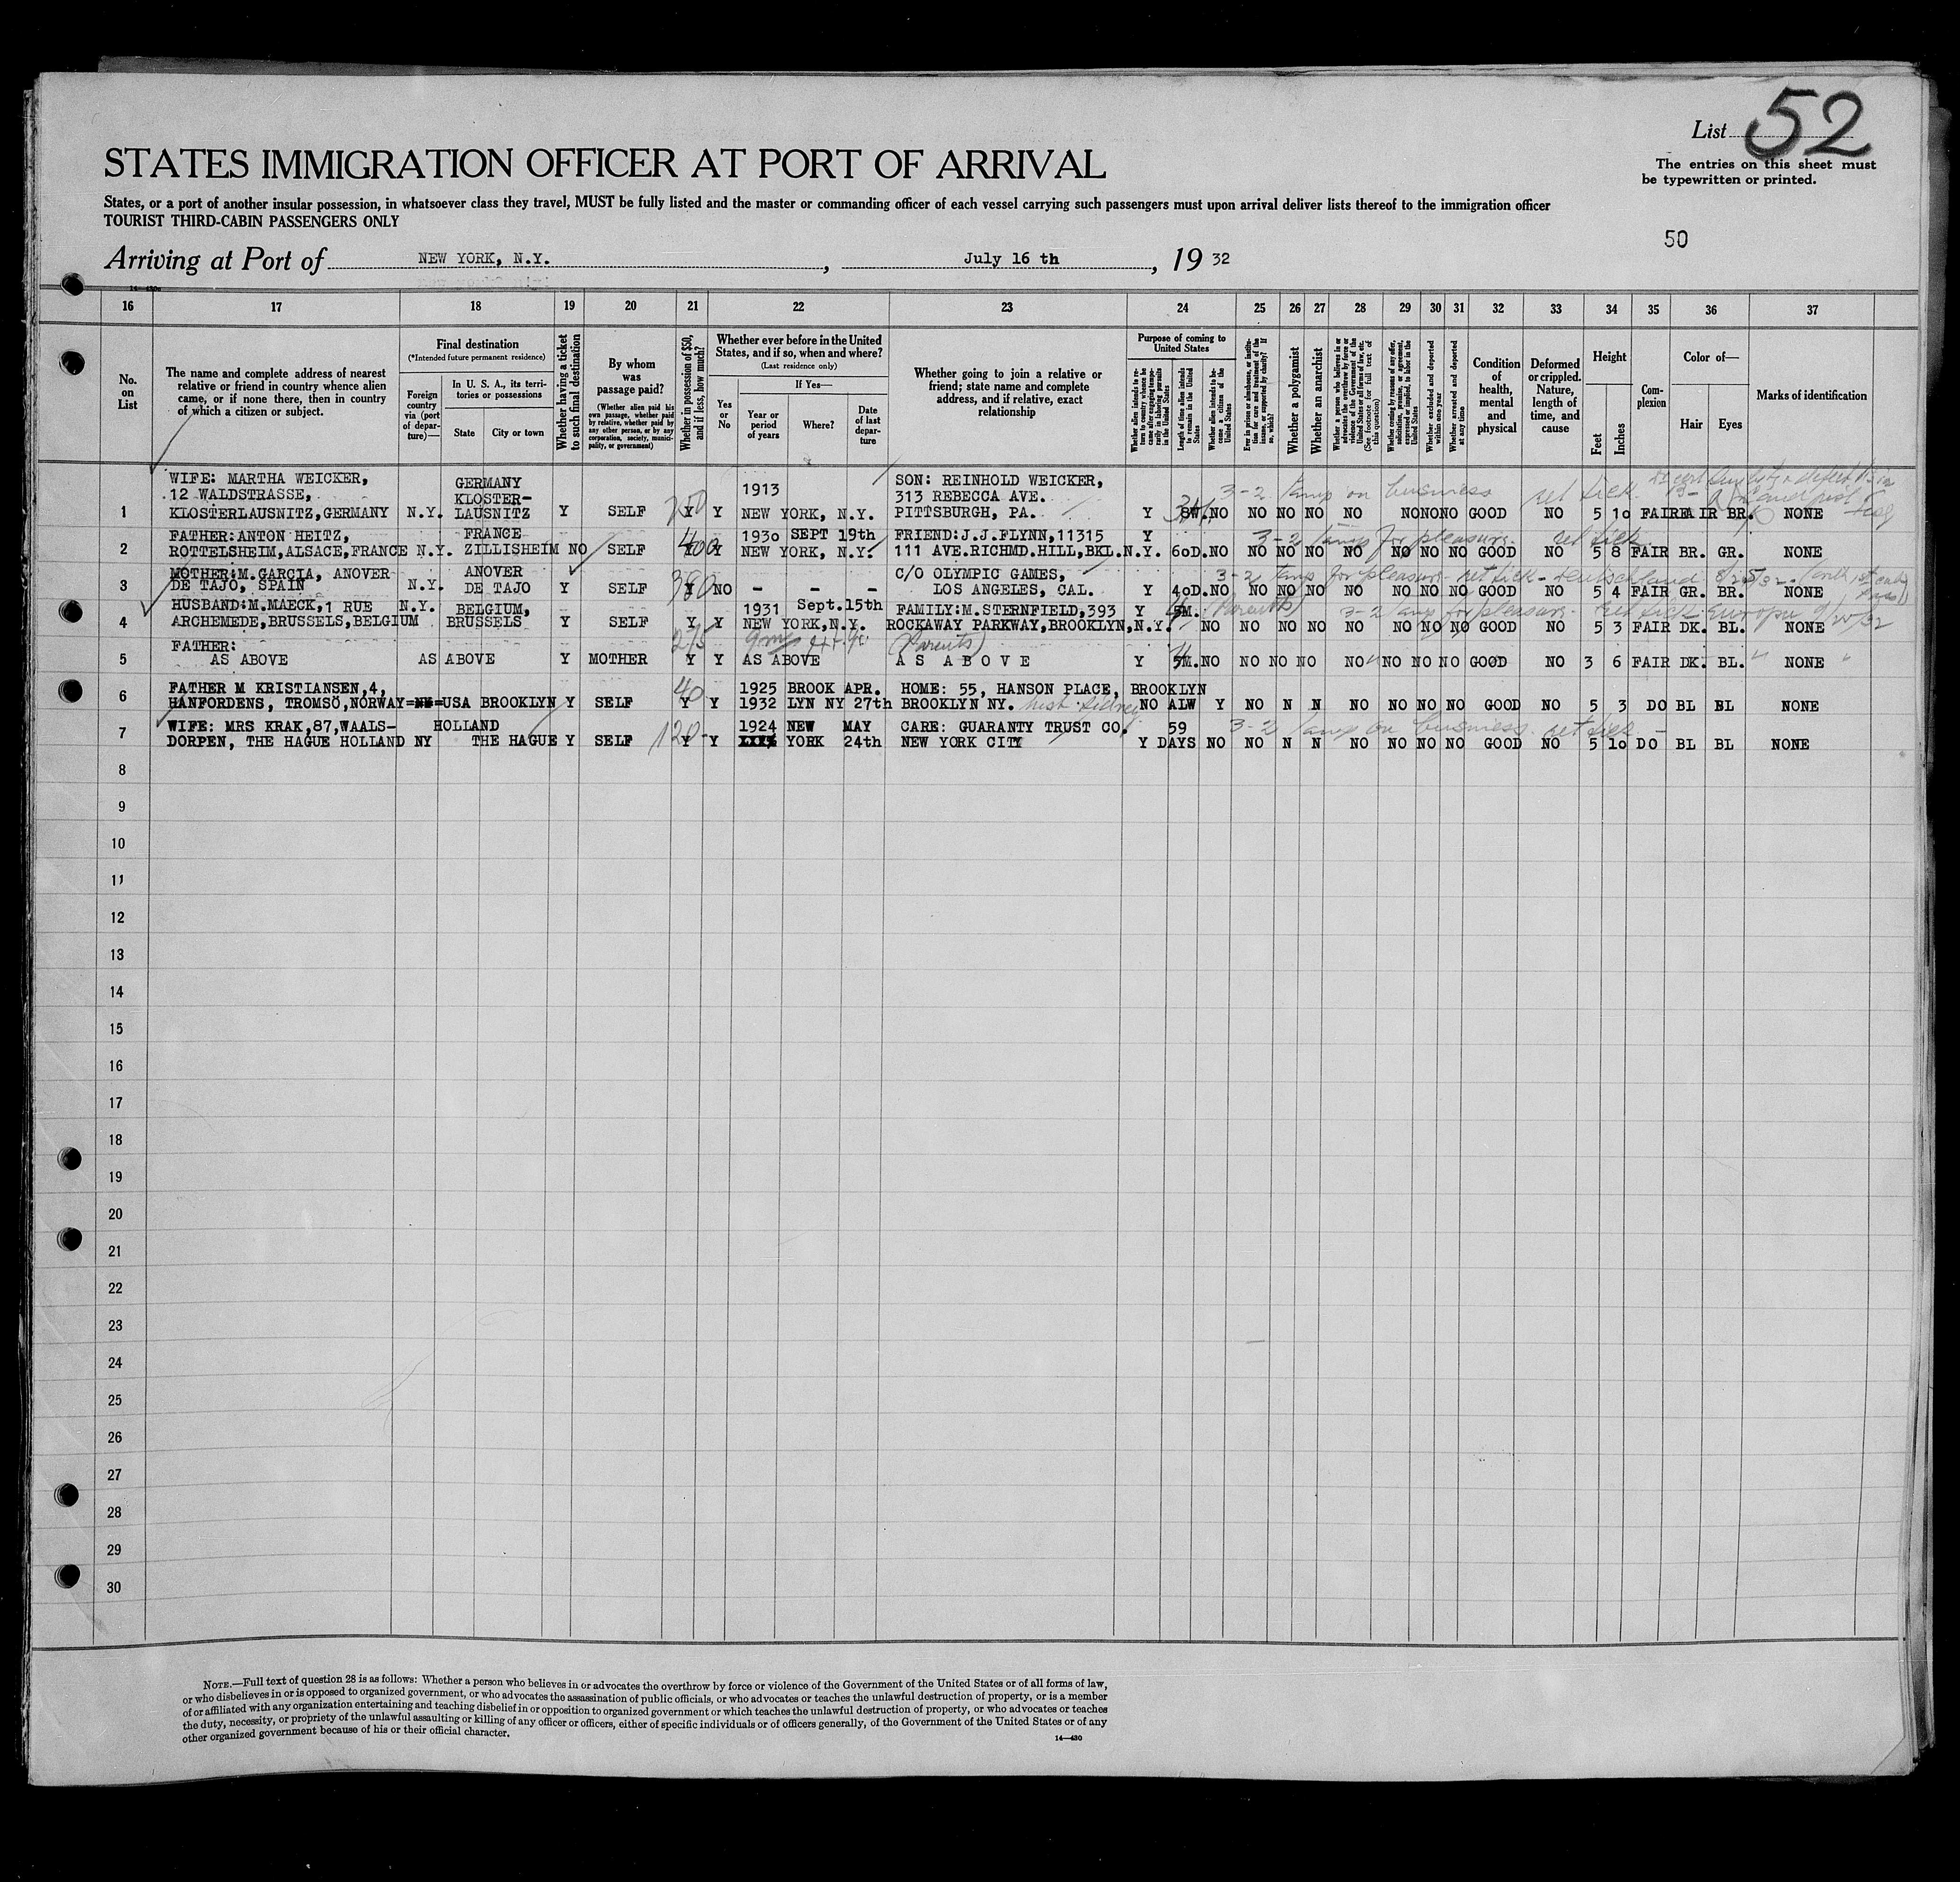 List 52
The entries on this sheet must
be typewritten or printed.
STATES IMMIGRATION OFFICER AT PORT OF ARRIVAL
States, or a port of another insular possession, in whatsoever class they travel, MUST be fully listed and the master or commanding officer of each vessel carrying such passengers must upon arrival deliver lists thereof to the immigration officer
TOURIST THIRD-CABIN PASSENGERS ONLY
50
Arriving at Port of NEW YORK, N.Y. , July 16 th , 19 32
16 17 18 19 20 21 22 23 24 25 26 27 28 29 30 31 32 33 34 35 36 37
No. on List
The name and complete address of nearest relative or friend in country whence alien came, or if none there, then in country of which a citizen or subject.
Final destination
(*Intended future permanent residence)
Foreign country via (port of departure)—
In U. S. A., its territories or possessions
State
City or town
Whether having a ticket to such final destination
By whom was passage paid?
(Whether alien paid his own passage, whether paid by relative, whether paid by any other person, or by any corporation, society, municipality, or government)
Whether in possession of $50, and if less, how much?
Whether ever before in the United States, and if so, when and where?
(Last residence only)
Yes or No
If Yes—
Year or period of years
Where?
Date of last departure
Whether going to join a relative or friend; state name and complete address, and if relative, exact relationship
Purpose of coming to United States
Whether alien intends to return to country whence he came after engaging temporarily in laboring pursuits in the United States
Length of time alien intends to remain in the United States
Whether alien intends to become a citizen of the United States
Ever in prison or almshouse, or institution for care and treatment of the insane, or supported by charity? If so, which?
Whether a polygamist
Whether an anarchist
Whether a person who believes in or advocates the overthrow by force or violence of the Government of the United States or all forms of law, etc. (See footnote for full text of this question)
Whether coming by reasons of any offer, solicitation, promise, or agreement, expressed or implied, to labor in the United States
Whether excluded and deported within one year
Whether arrested and deported at any time
Condition of health, mental and physical
Deformed or crippled. Nature, length of time, and cause
Height
Feet
Inches
Complexion
Color of—
Hair
Eyes
Marks of identification
WIFE: MARTHA WEICKER, GERMANY SON: REINHOLD WEICKER,
12 WALDSTRASSE, KLOSTER- 1913 313 REBECCA AVE. 3-2 temp on business ret tick.
1 KLOSTERLAUSNITZ,GERMANY N.Y. LAUSNITZ Y SELF 250 Y Y NEW YORK, N.Y. PITTSBURGH, PA. Y 8W. NO NO NO NO NO NO NO NO GOOD NO 5 10 FAIR FAIR BR. NONE
FATHER:ANTON HEITZ, FRANCE 1930 SEPT 19th FRIEND:J.J.FLYNN,11315 Y 3-2 temp for pleasure. ret tick.
2 ROTTELSHEIM,ALSACE,FRANCE N.Y. ZILLISHEIM NO SELF 400 Y Y NEW YORK, N.Y. 111 AVE.RICHMD.HILL,BKL.N.Y. 60D.NO NO NO NO NO NO NO NO GOOD NO 5 8 FAIR BR. GR. NONE
MOTHER:M.GARCIA, ANOVER ANOVER C/O OLYMPIC GAMES, 3-2 temp for pleasure - ret tick - Deutschland
3 DE TAJO, SPAIN N.Y. DE TAJO Y SELF 380 Y NO - - - LOS ANGELES, CAL. Y 40D.NO NO NO NO NO NO NO NO GOOD NO 5 4 FAIR GR. BR. NONE
HUSBAND:M.MAECK,1 RUE N.Y. BELGIUM, 1931 Sept.15th FAMILY:M.STERNFIELD,393 Y M. (Parents) 3-2 temp for pleasure. ret tick Europa 9/20/32
4 ARCHEMEDE,BRUSSELS,BELGIUM BRUSSELS Y SELF Y Y NEW YORK,N.Y. ROCKAWAY PARKWAY,BROOKLYN,N.Y. NO NO NO NO NO NO NO NO GOOD NO 5 3 FAIR DK. BL. NONE
FATHER: 275 (Parents)
5 AS ABOVE AS ABOVE Y MOTHER Y Y AS ABOVE A S A B O V E Y M.NO NO NO NO NO NO NO NO GOOD NO 3 6 FAIR DK. BL. NONE
FATHER M KRISTIANSEN,4, 40 1925 BROOK APR. HOME: 55, HANSON PLACE, BROOKLYN
6 HANFORDENS, TROMSÖ,NORWAY= =USA BROOKLYN Y SELF Y Y 1932 LYN NY 27th BROOKLYN NY. NO ALW Y NO N N NO NO NO NO GOOD NO 5 3 DO BL BL NONE
WIFE: MRS KRAK,87,WAALS- HOLLAND 1924 NEW MAY CARE: GUARANTY TRUST CO. 59 3-2 temp on business. ret tick
7 DORPEN, THE HAGUE HOLLAND NY THE HAGUE Y SELF 120 Y Y YORK 24th NEW YORK CITY Y DAYS NO NO N N NO NO NO NO GOOD NO 5 10 DO BL BL NONE
8
9
10
11
12
13
14
15
16
17
18
19
20
21
22
23
24
25
26
27
28
29
30
NOTE.—Full text of question 28 is as follows: Whether a person who believes in or advocates the overthrow by force or violence of the Government of the United States or of all forms of law,
or who disbelieves in or is opposed to organized government, or who advocates the assassination of public officials, or who advocates or teaches the unlawful destruction of property, or is a member
of or affiliated with any organization entertaining and teaching disbelief in or opposition to organized government or which teaches the unlawful destruction of property, or who advocates or teaches
the duty, necessity, or propriety of the unlawful assaulting or killing of any officer or officers, either of specific individuals or of officers generally, of the Government of the United States or of any
other organized government because of his or their official character.
14—430